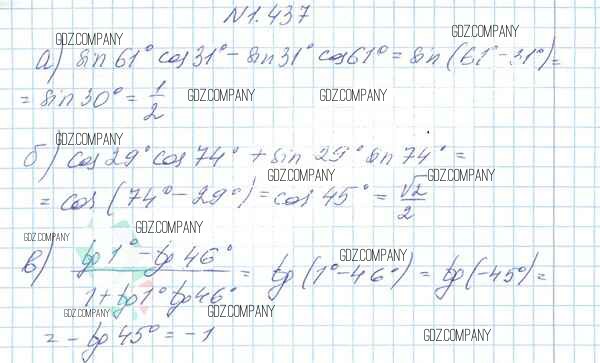 N1.437
GDZ.COMPANY GDZ.COMPANY
а) sin 61° cos 31° - sin 31° cos 61° = sin (61° - 31°) =
= sin 30° = 1/2
GDZ.COMPANY GDZ.COMPANY
GDZ.COMPANY
б) cos 29° cos 74° + sin 29° sin 74° =
GDZ.COMPANY GDZ.COMPANY
= cos (74° - 29°) = cos 45° = √2/2
GDZ.COMPANY
GDZ.COMPANY GDZ.COMPANY
в) (tg 1° - tg 46°)/(1 + tg 1° tg 46°) = tg (1° - 46°) = tg (-45°) =
GDZ.COMPANY GDZ.COMPANY
= - tg 45° = -1
GDZ.COMPANY